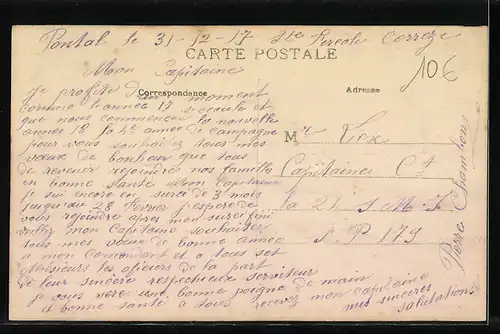 Pontal le 31-12-17 Ste Fereole Correze
CARTE POSTALE
106
Mon Capitaine
Correspondance
Adresse
Je profite d'un moment
comme l'année 17 s'écoule et
que nous commencon la nouvelle
année 18 la 4e année de Campagne
pour vous souhaiter tous mes
vœux de bonheur que tous
de revenir rejoindre nos famille
en bonne santé Mon Capitaine
je sui encore en sursi de 3 mois
jusqu'au 28 Fevrier j'espere de
vous rejoindre apres mon sursi fini
veillez mon Capitaine souhaiter
tous mes vœux de bonne année
a mon Comandant et a tous ses
Messieurs les oficiers de la part
de leur sincère respectueux serviteur
je vous serre une bonne poigne de main
et bonne santé a tous recevez mon capitaine
mes sincères
salutations
Mr
Capitaine Ct
la 21 S M I
S P 179
Pierre Chambon